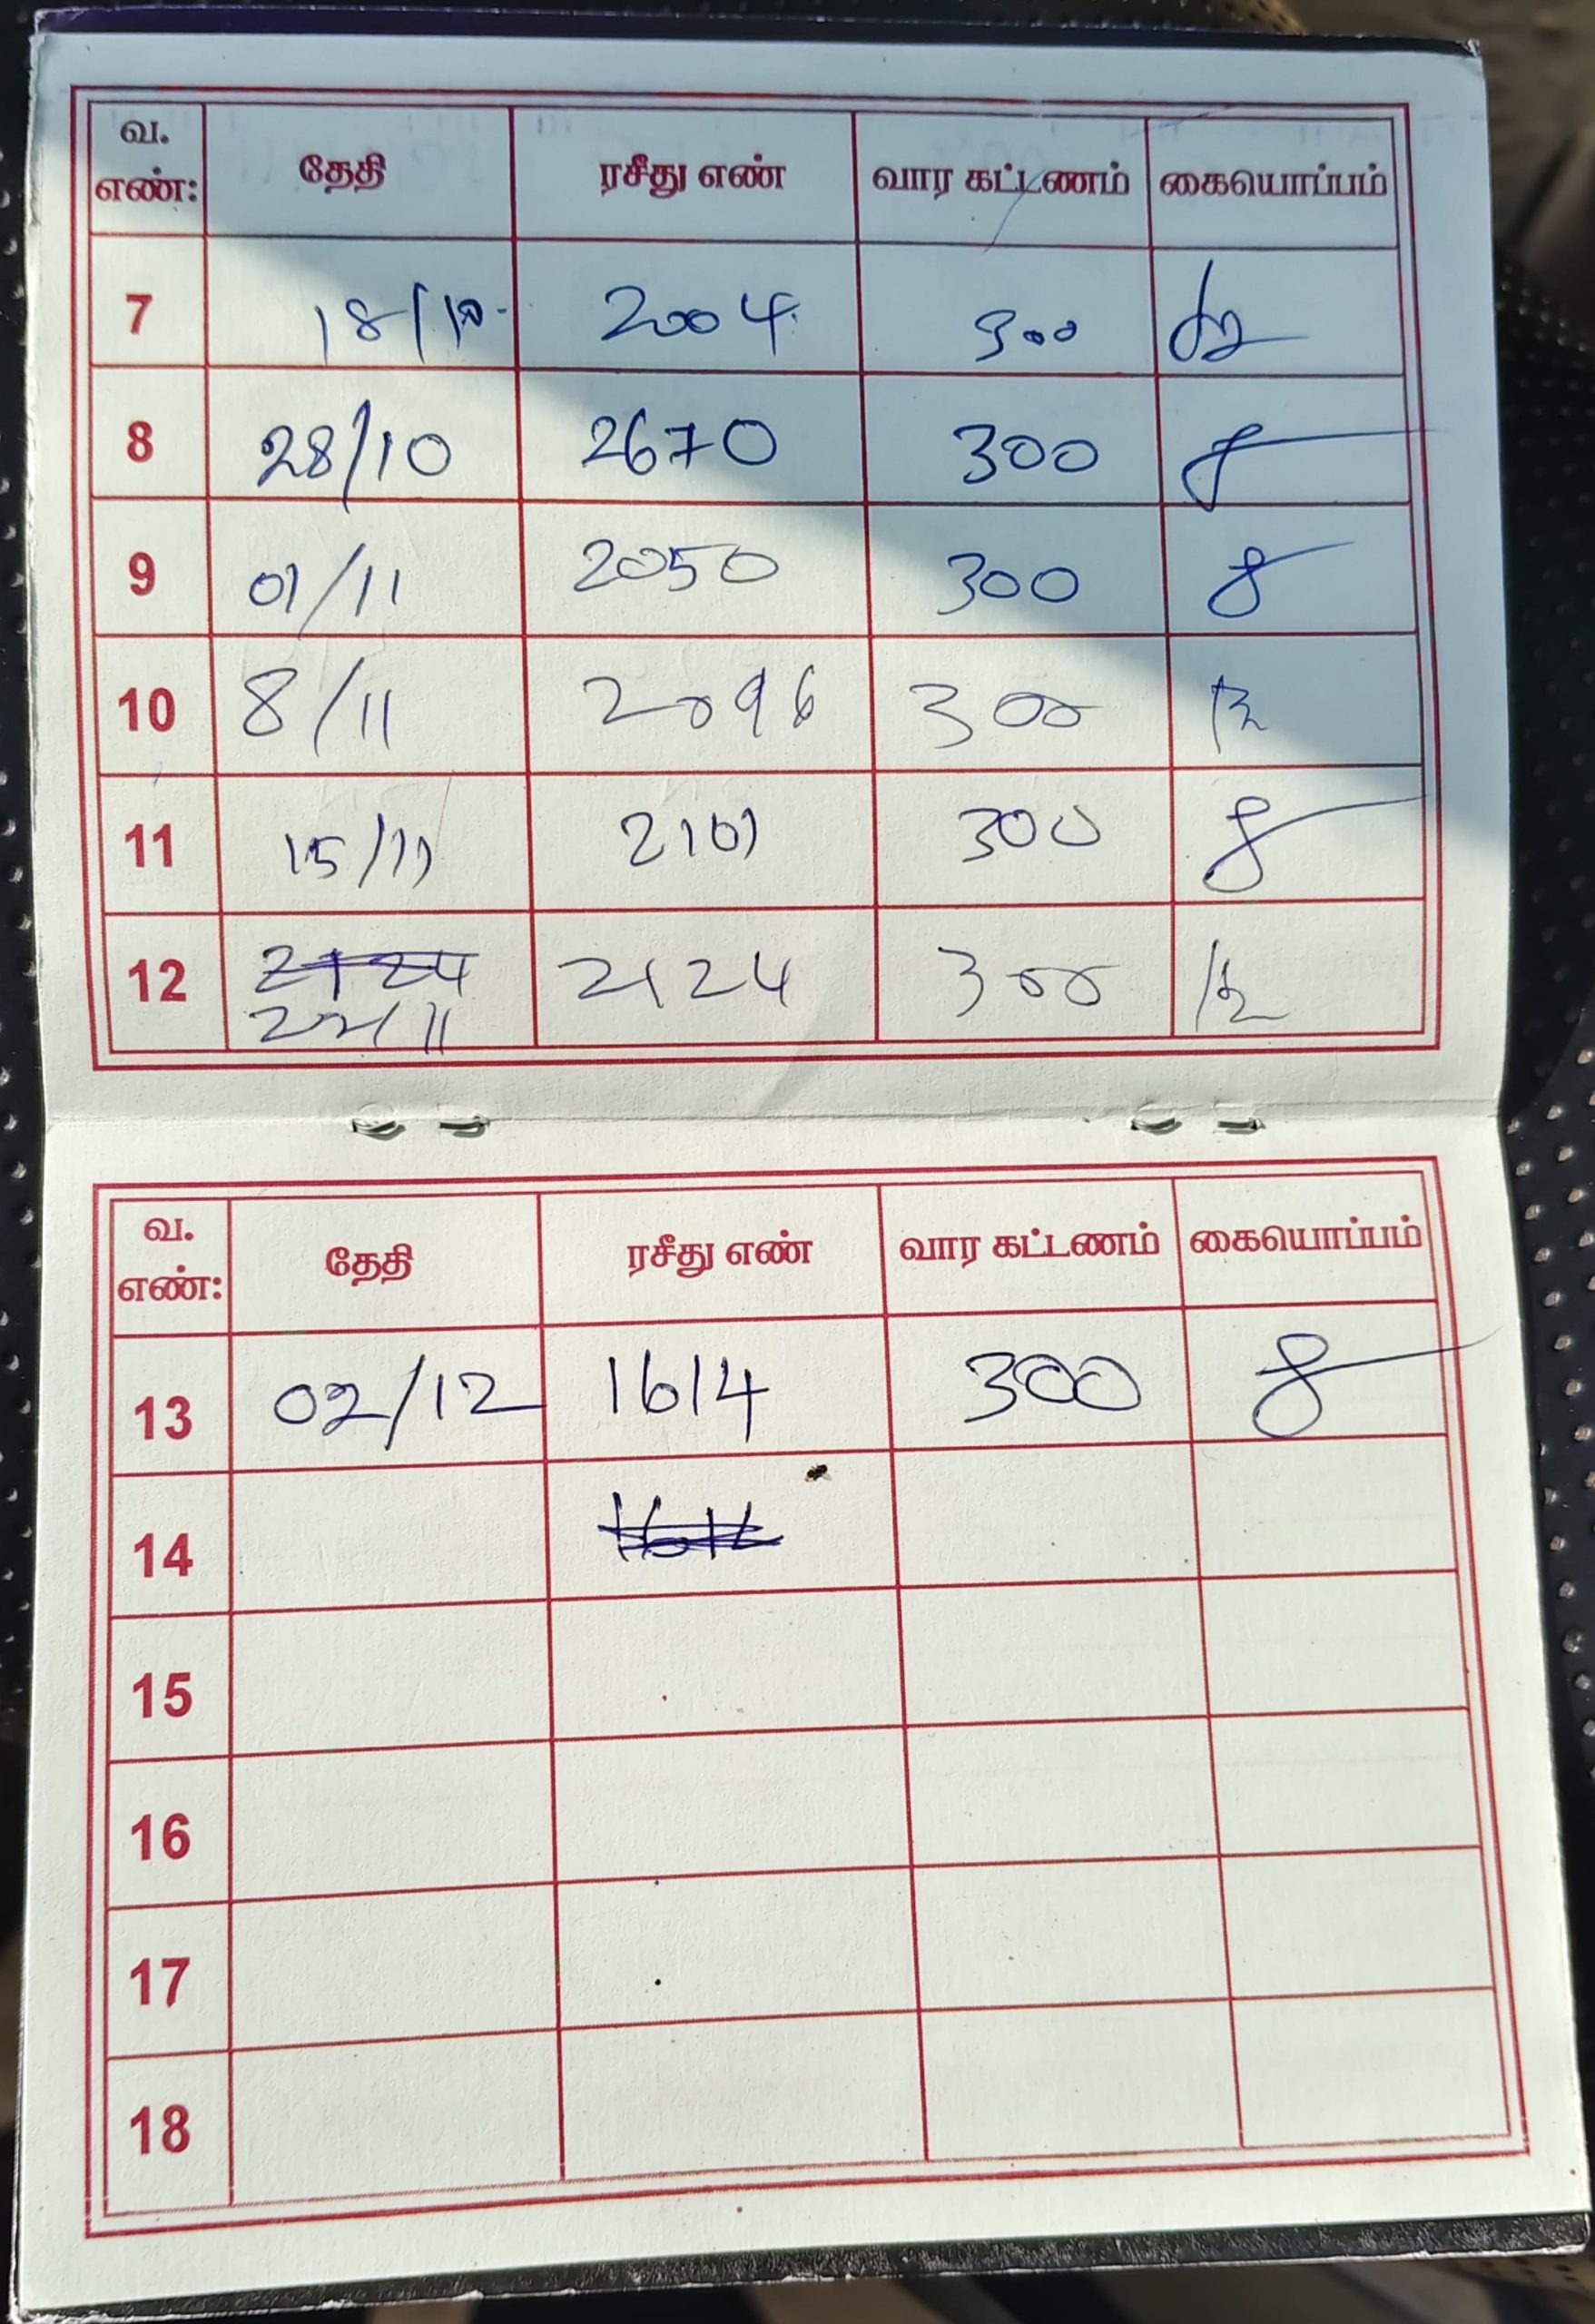 வ. எண்: தேதி ரசீது எண் வார கட்டணம் கையொப்பம்
7 18/10 2004 300
8 28/10 2670 300
9 01/11 2050 300
10 8/11 2096 300
11 15/11 2101 300
12 2124 2124 300
22/11
வ. எண்: தேதி ரசீது எண் வார கட்டணம் கையொப்பம்
13 02/12 1614 300
14 1614
15
16
17
18